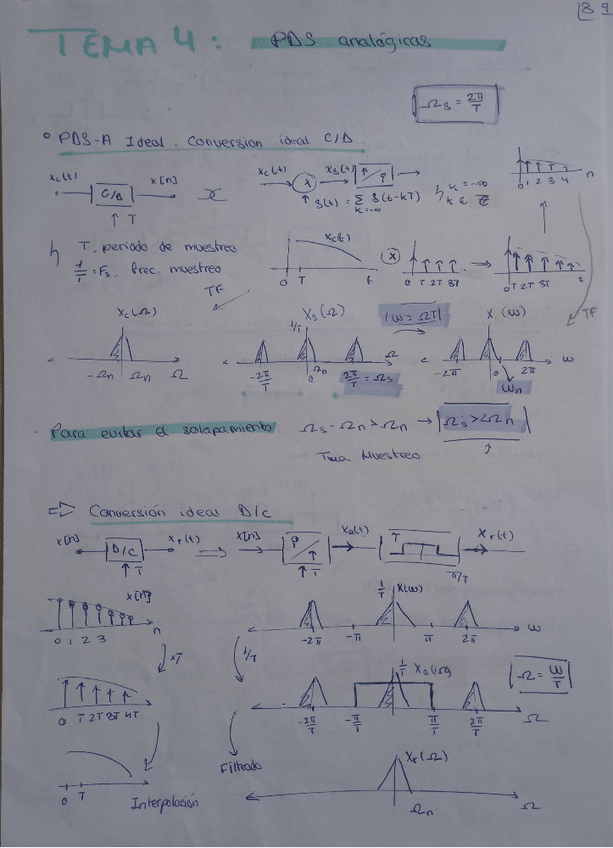 89
TEMA 4: PDS analógicas
Ωs = 2π/T
PDS-A Ideal. Conversion ideal C/D
xc(t) C/D x[n] xc(t) x xs(t) ↑/P
↑ T ↑ S(t) = Σ δ(t-kT) k=-∞
0 1 2 3 4 n
T, periodo de muestreo
1/T = Fs, frec. muestreo
xc(t) 0 T t x 0 T 2T 3T → 0 T 2T 3T t
TF TF
Xc(Ω) Xs(Ω) |ω = ΩT| X(ω)
1/T
-Ωn Ωn Ω -2π/T 0 Ωn 2π/T = Ωs Ω -2π 0 2π ω
ωn
Para evitar el solapamiento: Ωs - Ωn > Ωn → Ωs > 2Ωn
Tma Muestreo
=> Conversión ideal D/C
x[n] D/C xr(t) => x[n] P/↑ xa(t) T xr(t)
↑ T ↑ T π/T
x[n] 0 1 2 3 n
1/T X(ω) -2π -π π 2π ω
xT 1/T
0 T 2T 3T 4T
1/T Xa(Ω) Ω = ω/T
-2π/T -π/T π/T 2π/T Ω
Filtrado
Xr(Ω)
0 T Interpolación
Ωn Ω